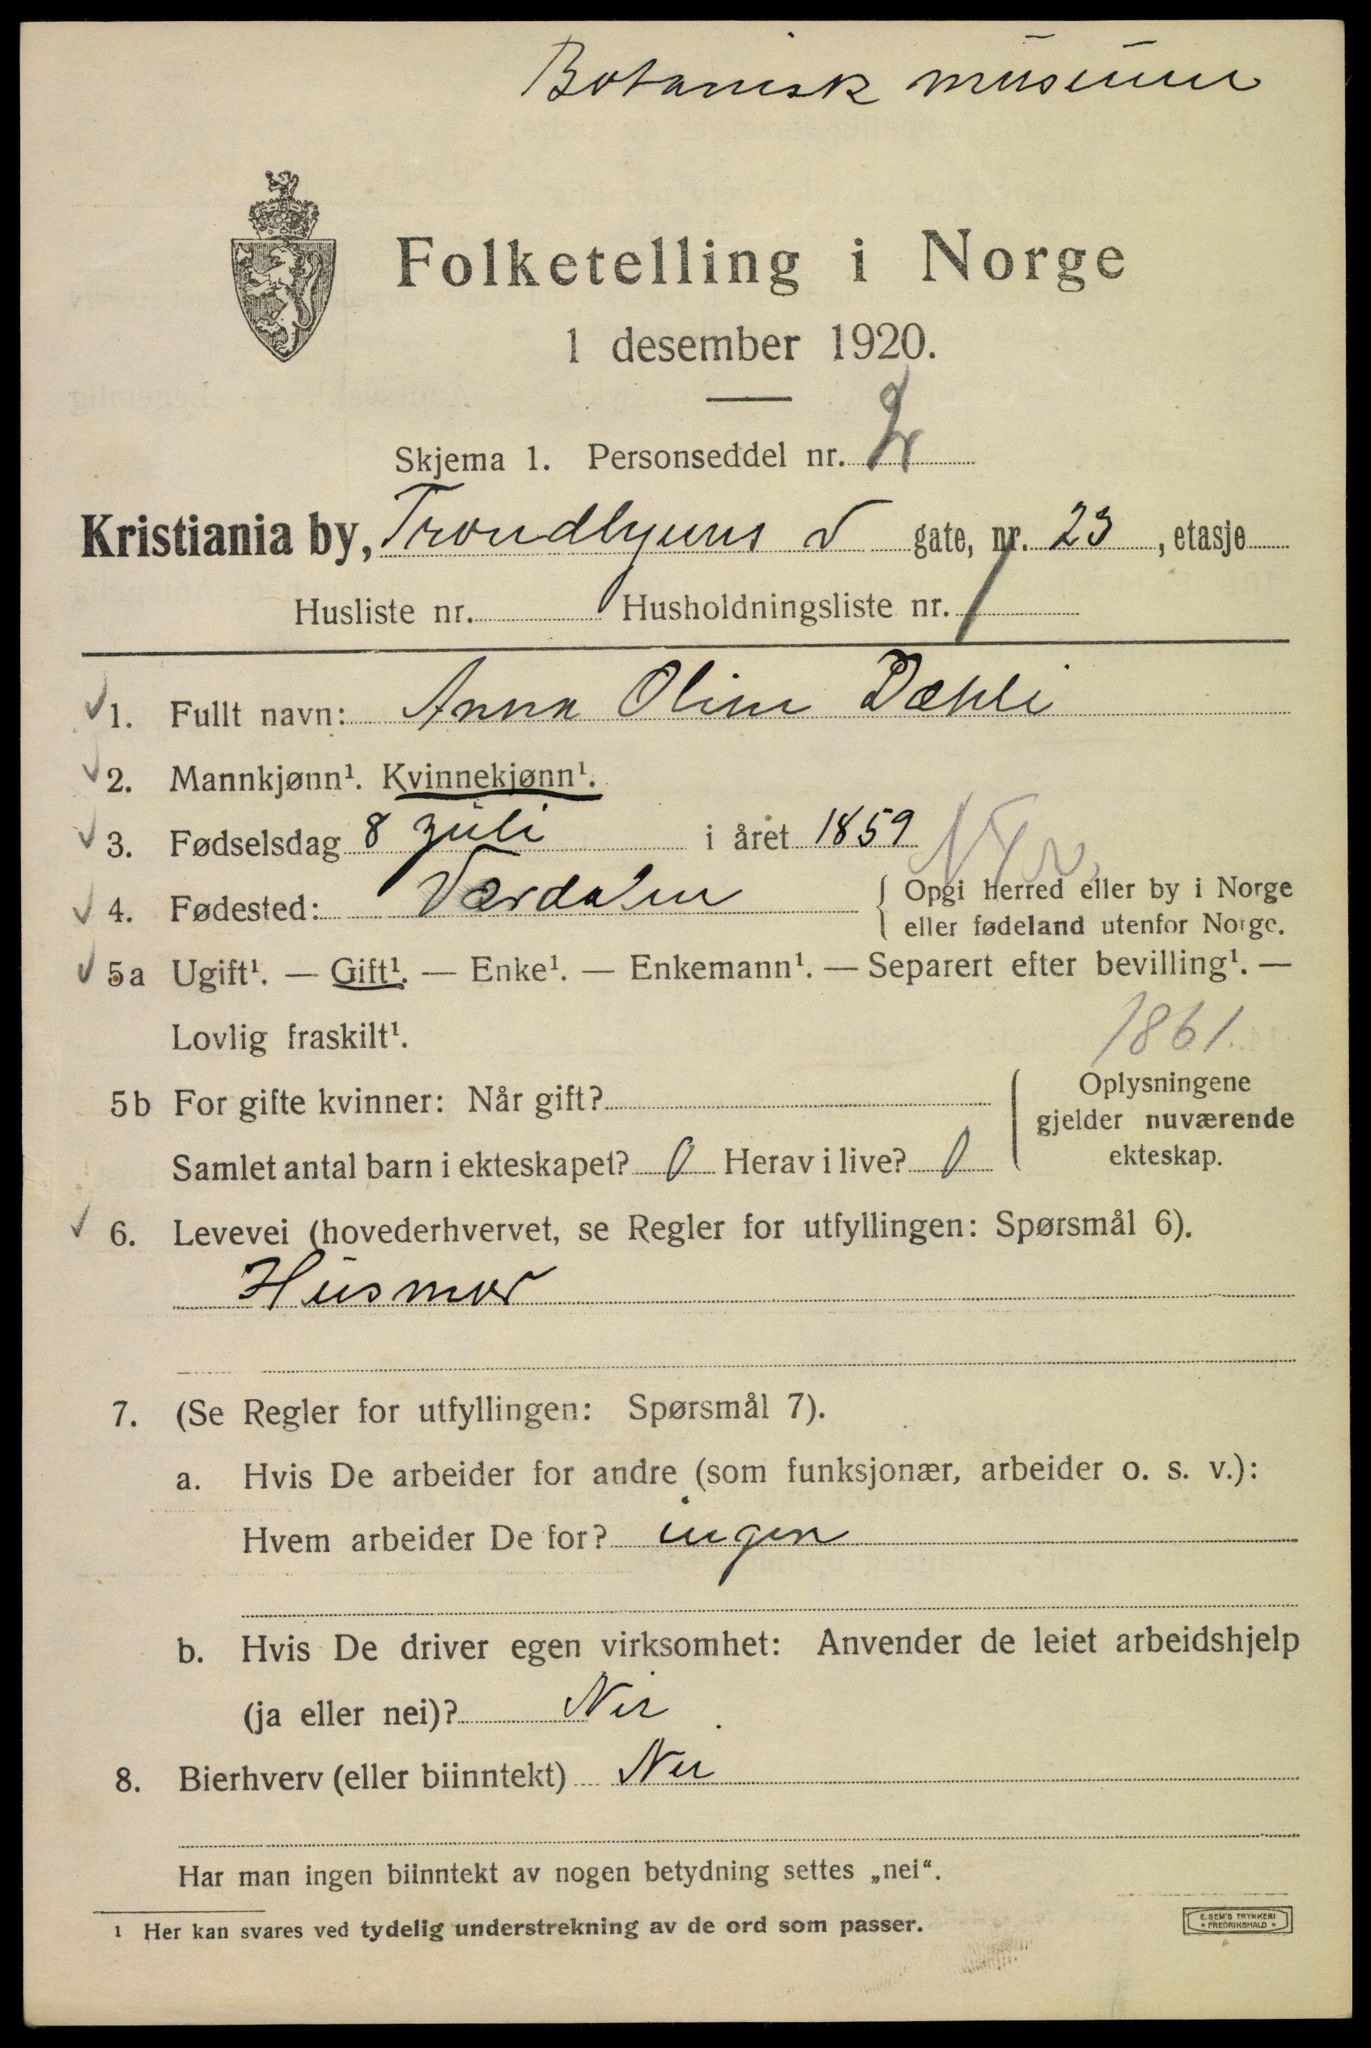 Botanisk museum
Folketelling i Norge
1 desember 1920.
Skjema 1. Personseddel nr. 2
Kristiania by, Trondhjems v gate, nr. 23, etasje
Husliste nr. Husholdningsliste nr. 1
1. Fullt navn: Anna Oline Dæhli
2. Mannkjønn¹. Kvinnekjønn¹.
3. Fødselsdag 8 juli i året 1859
4. Fødested: Værdalen { Opgi herred eller by i Norge
eller fødeland utenfor Norge.
5a Ugift¹. — Gift¹. — Enke¹. — Enkemann¹. — Separert efter bevilling¹. —
Lovlig fraskilt¹.
1861.
5b For gifte kvinner: Når gift? { Oplysningene
gjelder nuværende
Samlet antal barn i ekteskapet? 0 Herav i live? 0 ekteskap.
6. Levevei (hovederhvervet, se Regler for utfyllingen: Spørsmål 6).
Husmor
7. (Se Regler for utfyllingen: Spørsmål 7).
a. Hvis De arbeider for andre (som funksjonær, arbeider o. s. v.):
Hvem arbeider De for? ingen
b. Hvis De driver egen virksomhet: Anvender de leiet arbeidshjelp
(ja eller nei)? Nei
8. Bierhverv (eller biinntekt) Nei
Har man ingen biinntekt av nogen betydning settes „nei“.
¹ Her kan svares ved tydelig understrekning av de ord som passer.
E. SEM'S TRYKKERI
FREDRIKSHALD